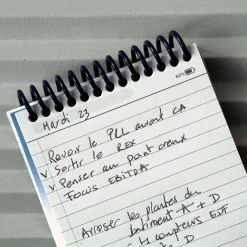 82%
Mardi 23
Revoir le P&L avant CA
v Sortir le REX
v Penser au point creux
Focus EBITDA
Arroser les plantes du
bâtiment A + D
compteurs EDF
D